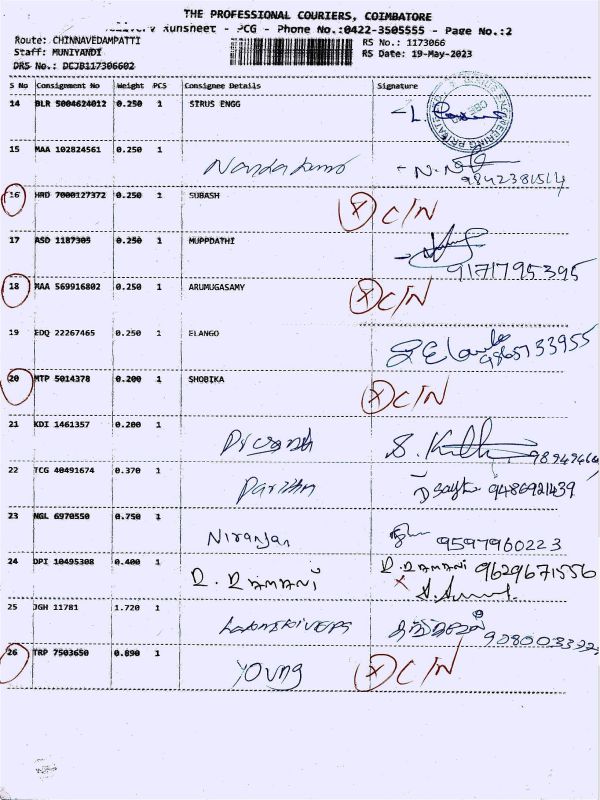 THE PROFESSIONAL COURIERS, COIMBATORE
Runsheet - PCG - Phone No.:0422-3505555 - Page No.:2
Route: CHINNAVEDAMPATTI RS No.: 1173066
Staff: MUNIYANDI RS Date: 19-May-2023
DRS No.: DCJB117306602
S No Consignment No Weight PCS Consignee Details Signature
14 BLR 5004624012 0.250 1 SIRUS ENGG
15 MAA 102824561 0.250 1 9842381514
16 HRD 7000127372 0.250 1 SUBASH X C/N
17 ASD 1187305 0.250 1 MUPPDATHI 9171795395
18 MAA 569916802 0.250 1 ARUMUGASAMY X C/N
19 EDQ 22267465 0.250 1 ELANGO 9865733955
20 MTP 5014378 0.200 1 SHOBIKA X C/N
21 KDI 1461357 0.200 1
22 TCG 40491674 0.370 1 9486921439
23 NGL 6970550 0.750 1 Niranjan 9597960223
24 DPI 10495308 0.400 1 R. RAMANI R. RAMANI 9629671556
25 JGH 11781 1.720 1
26 TRP 7503650 0.890 1 Young X C/N